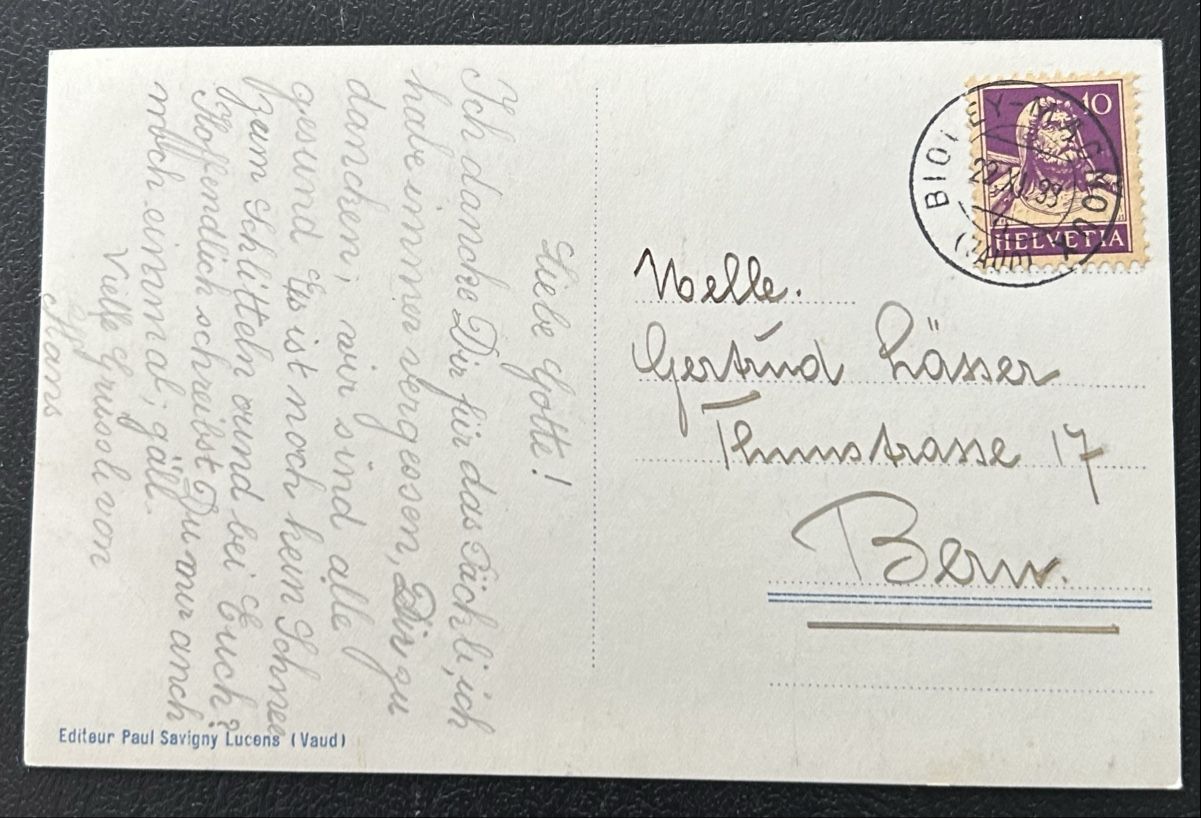 Liebe Gotte!
Ich dancke Dir für das Päckli, ich
habe immer vergessen, Dir zu
dencken, wir sind alle
gesund. Es ist noch keim Schnee
zum schlitteln ound bei Euch?
Hoffendlich schreibst Du mir auch
noch einmal, gäll.
Viele Grüssli von
Hans
Editeur Paul Savigny Lucens (Vaud)
10
HELVETIA
BIOLEY-MAGNOUX
22.XI.33
(VAUD)
Melle.
Gertrud Lässer
Thunstrasse 17
Bern.